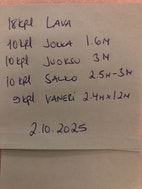 18kpl LAVA
10kpl JALKA 1.6M
10kpl JUOKSU 3M
10kpl SALKO 2.5M-3M
9kpl VANERI 2.4M×1.2M
2.10.2025